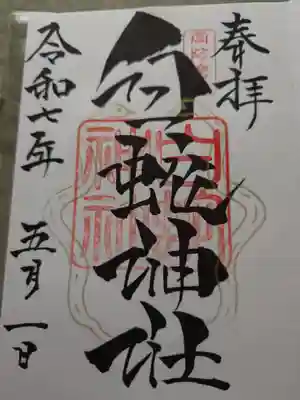 奉拝
白蛇神社
令和七年
五月一日